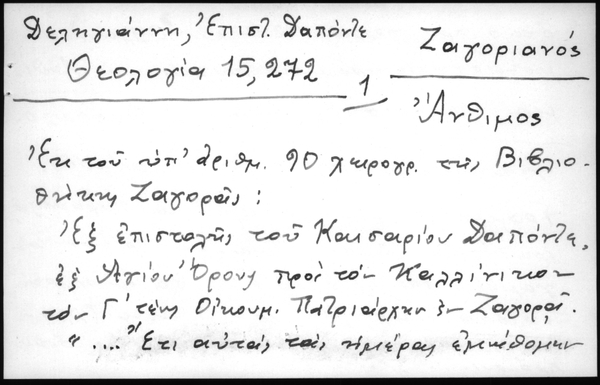 Δεληγιάννη, Ἐπιστ. Δαπόντε
Θεολογία 15, 272
1
Ζαγοριανός
Ἄνθιμος
Ἐκ τοῦ ὑπ' ἀριθμ. 90 χειρογρ. τῆς Βιβλιο-
θήκης Ζαγορᾶς:
Ἐξ ἐπιστολῆς τοῦ Καισαρίου Δαπόντε,
ἐξ Ἁγίου Ὄρους πρὸς τὸν Καλλίνικον
τὸν Γ' τέως Οἰκουμ. Πατριάρχην ἐν Ζαγορᾷ.
"...." Ἔτι αὐτὰς τὰς ἡμέρας ἐμάθομεν